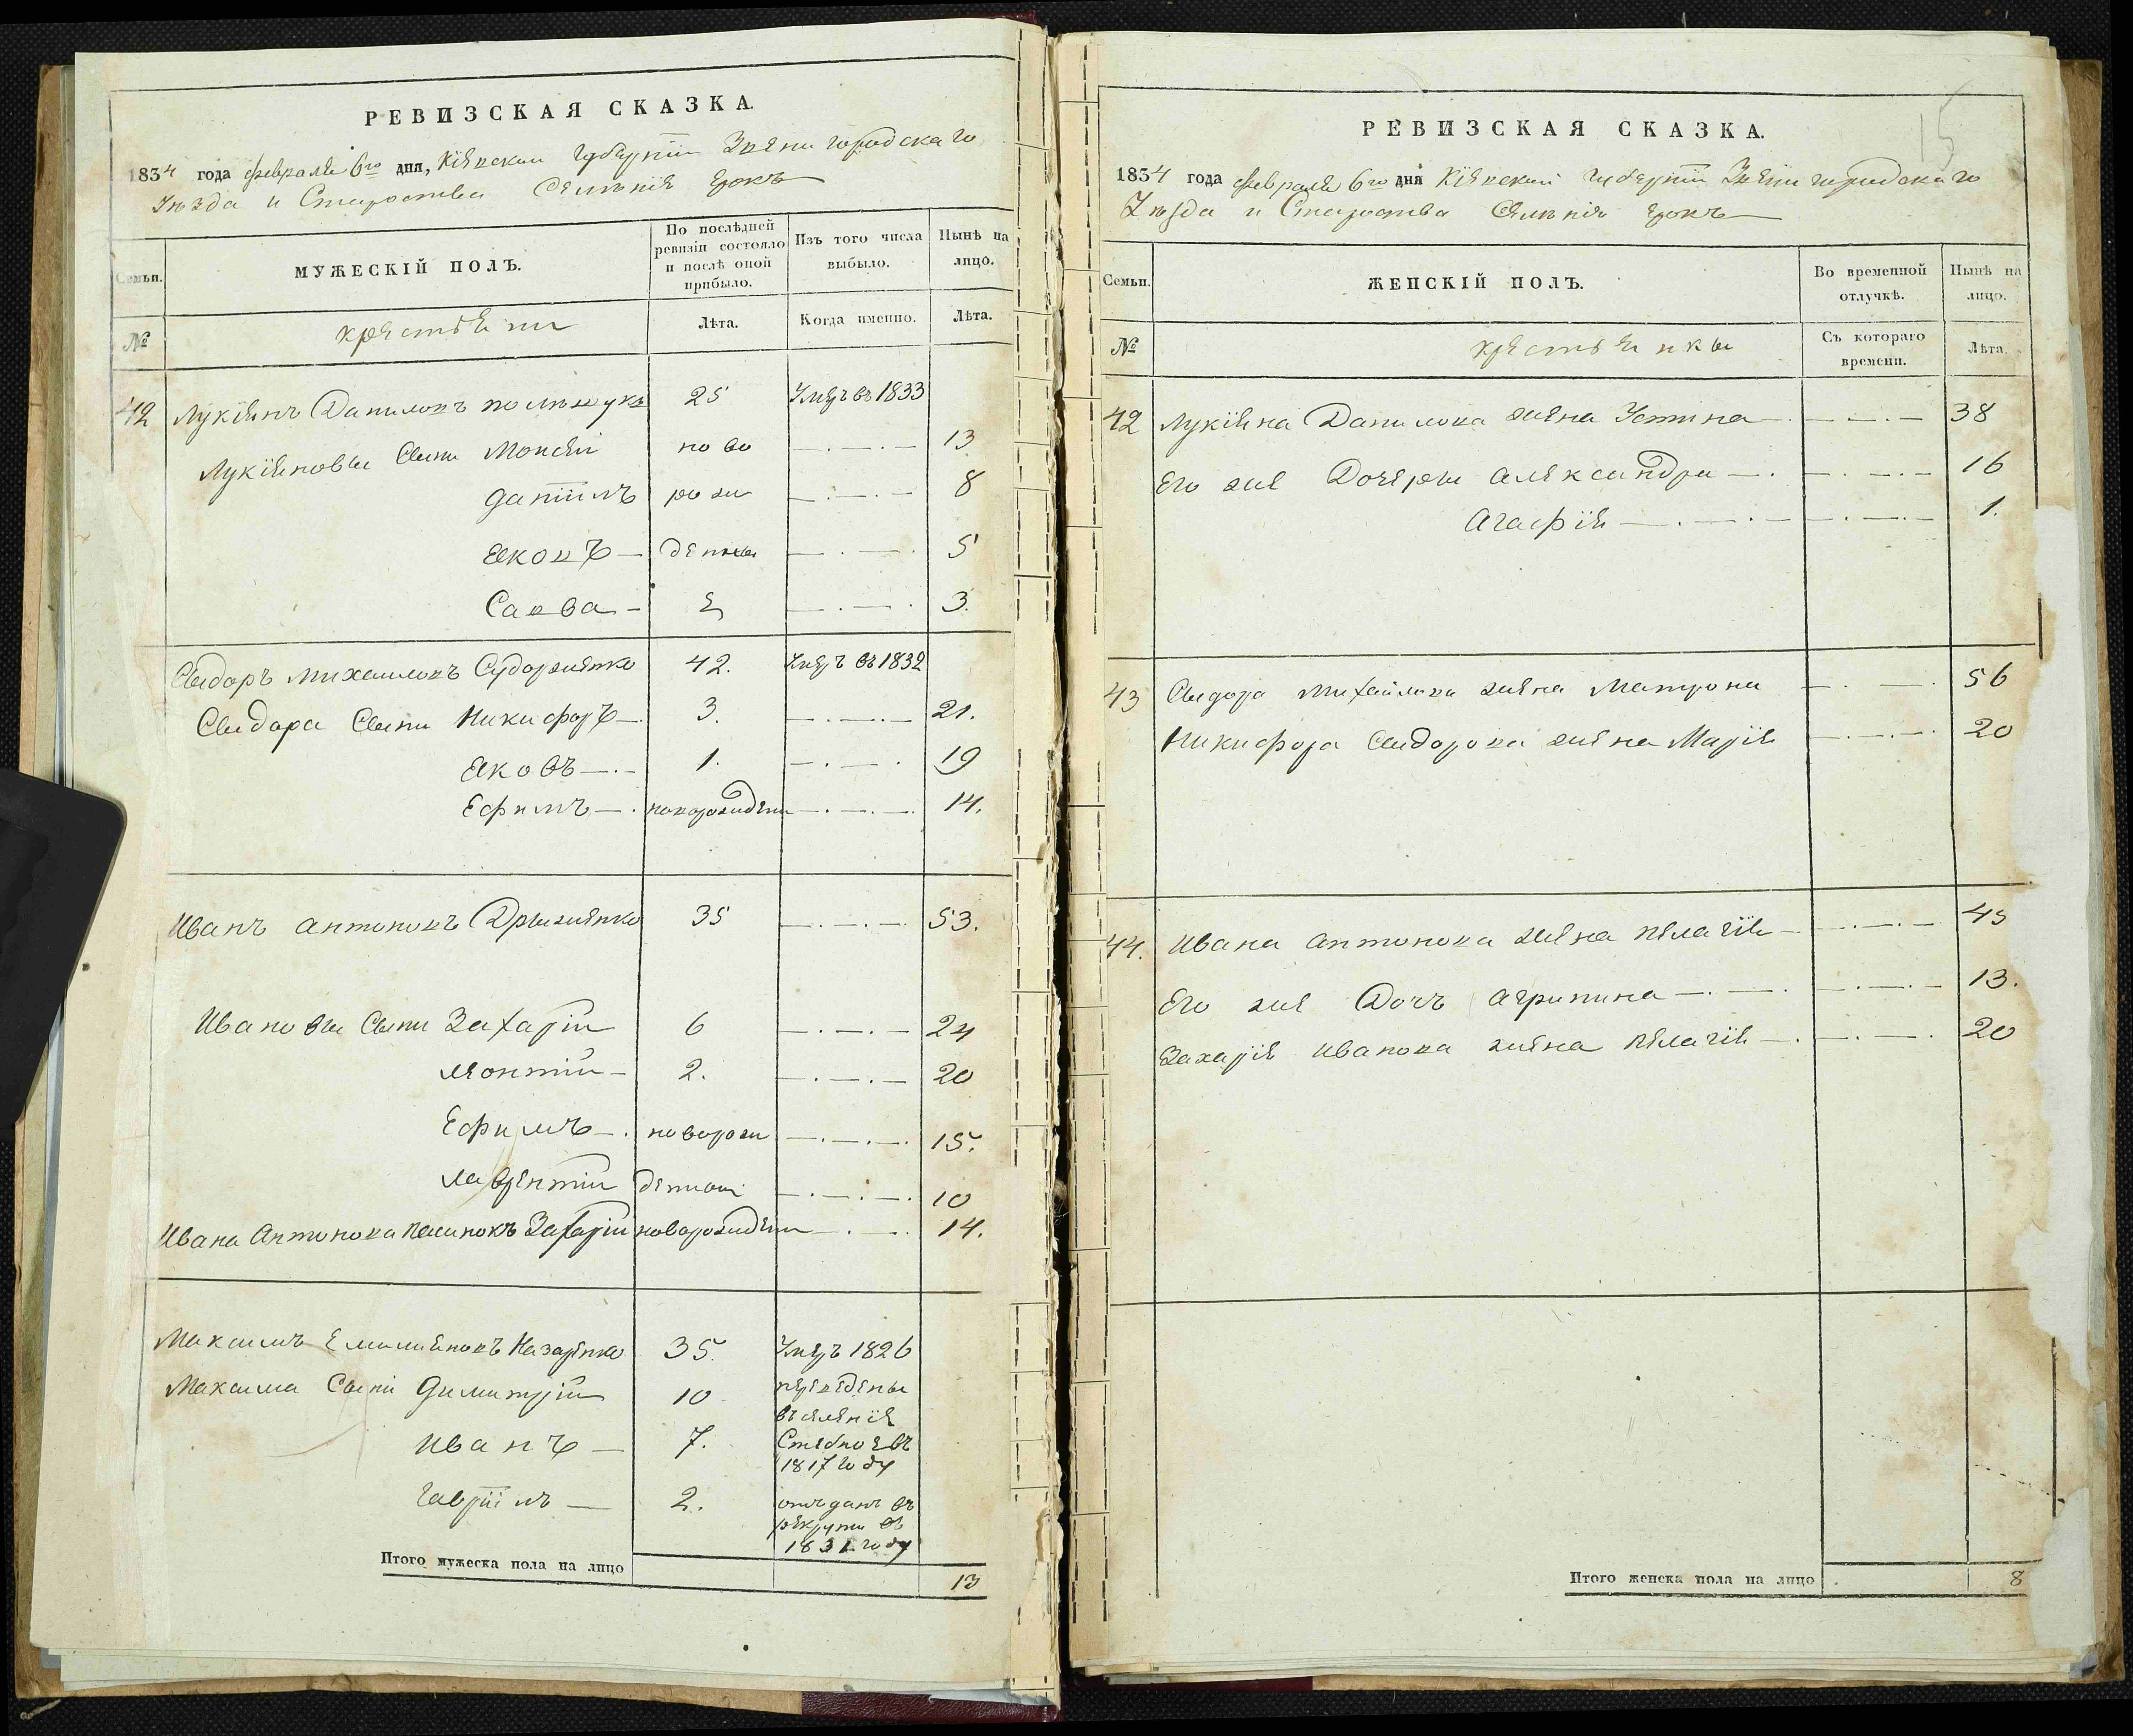 РЕВИЗСКАЯ СКАЗКА.
1834 года февраля 6го дня, Кіевскои Губерніи Звенигородскаго
Уѣзда и Староства Селѣнія Ерокъ
Семьи.
МУЖЕСКІЙ ПОЛЪ.
По послѣдней ревизіи состояло и послѣ оной прибыло.
Изъ того числа выбыло.
Нынѣ на лицо.
№
крестьяни
Лѣта.
Когда именно.
Лѣта.
42 Лукіянъ Даниловъ 25 Умеръ въ 1833
Лукіяновы Сыни Мойсей ново —.—.— 13
Даніилъ рож —.—.— 8
Яковъ — денны —.—. 5
Савва — е —.—. 3.
Сыдоръ Михаиловъ Судорженко 42. Умеръ въ 1832
Сыдора Сыни Никифоръ —. 3. —.—.— 21.
Яковъ —.— 1. —.—. 19
Ефимъ —. новорожденъ —.—.—. 14.
Иванъ Антоновъ Дрыженко 35 —.—.—. 53.
Ивановы Сыни Захарій 6 —.—.— 24
Леонтій — 2. —.—.— 20
Ефимъ —. новорож —.—.—. 15.
Лаврентій денны —.—.—. 10
Ивана Антонова Пасинокъ Захарій новорожденъ —.—. 14.
Максимъ Емилияновъ Назаренко 35. Умеръ 1826
Максима Сыни Димитрій 10 переведены
въ селеніе
Иванъ — 7. Стебное въ
1817 году
Гавріилъ — 2. отъданъ въ
рекруты въ
1831 году
Итого мужеска пола на лицо 13
15
РЕВИЗСКАЯ СКАЗКА.
1834 года февраля 6го дня Кіевскои Губерніи Звенигородскаго
Уѣзда и Староства Селѣнія Ерокъ —
Семьи.
ЖЕНСКІЙ ПОЛЪ.
Во временной отлучкѣ.
Нынѣ на лицо.
№
крестьянкы
Съ котораго времени.
Лѣта.
42 Лукіяна Данилова жена Устина —. —.—.— 38
Его же Дочеры Александра —. —.—.— 16
Агафія —.—.— —.—.— 1.
43 Сыдора Михайлова жена Матрона —.—. 56
Никифора Сыдорова жена Марія —.—.—. 20
44. Ивана Антонова жена Пелагія — —.—.— 45
Его же Дочъ Агрипина —.—. —.—.— 13.
Захарія Иванова жена Пелагія —. —.—. 20
Итого женска пола на лицо . 8